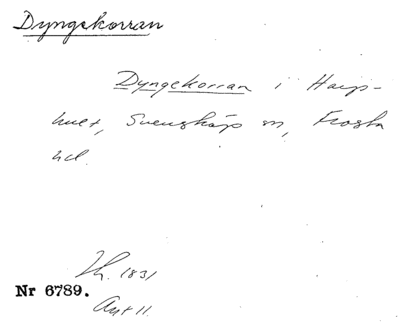 Dyngekorran
Dyngekorran i Harp-
hult, Svensköp sn, Frosta
hd.
Th. 1831
Nr 6789.
Ant 11.